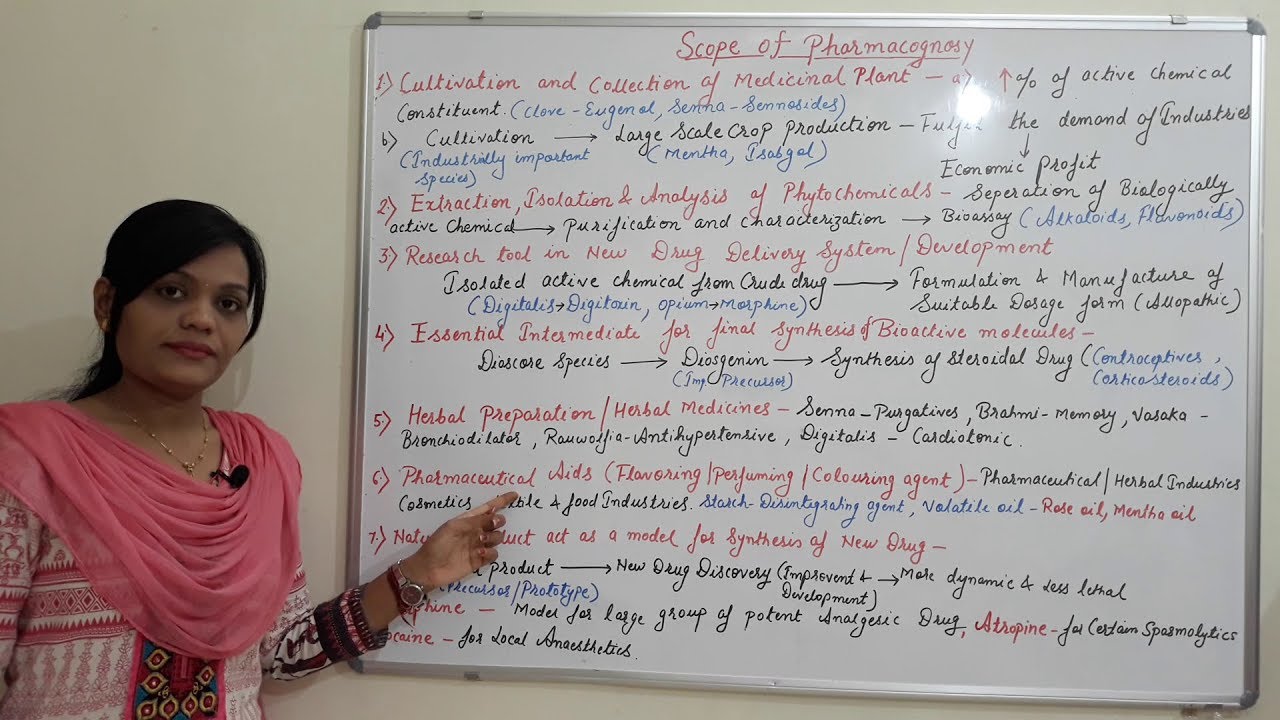 Scope of Pharmacognosy
1) Cultivation and Collection of Medicinal Plant - a) ↑ % of active chemical
Constituent. (Clove - Eugenol, Senna - Sennosides)
b) Cultivation → Large Scale Crop Production - Fulfil the demand of Industries
(Industrially important (Mentha, Isabgol) ↓
Species) Economic Profit
2) Extraction, Isolation & Analysis of Phytochemicals - Seperation of Biologically
active Chemical → Purification and characterization → Bioassay (Alkaloids, Flavonoids)
3) Research tool in New Drug Delivery System / Development
Isolated active chemical from Crude drug → Formulation & Manufacture of
(Digitalis → Digitoxin, Opium → Morphine) Suitable Dosage form (Allopathic)
4) Essential Intermediate for final synthesis of Bioactive molecules -
Dioscore Species → Diosgenin → Synthesis of Steroidal Drug (Contraceptives,
(Imp. Precursor) Corticosteroids)
5) Herbal Preparation / Herbal Medicines - Senna - Purgatives, Brahmi - Memory, Vasaka -
Bronchiodilator, Rauwolfia - Antihypertensive, Digitalis - Cardiotonic.
6) Pharmaceutical Aids (Flavoring / Perfuming / Colouring agent) - Pharmaceutical / Herbal Industries
Cosmetics & food Industries. Starch - Disintegrating agent, Volatile oil - Rose oil, Mentha oil
7.) act as a model for Synthesis of New Drug -
product → New Drug Discovery (Improvent & → More dynamic & Less lethal
(Precursor/Prototype) Development)
- Model for large group of potent Analgesic Drug, Atropine - for Certain Spasmolytics
- for Local Anaesthetics.